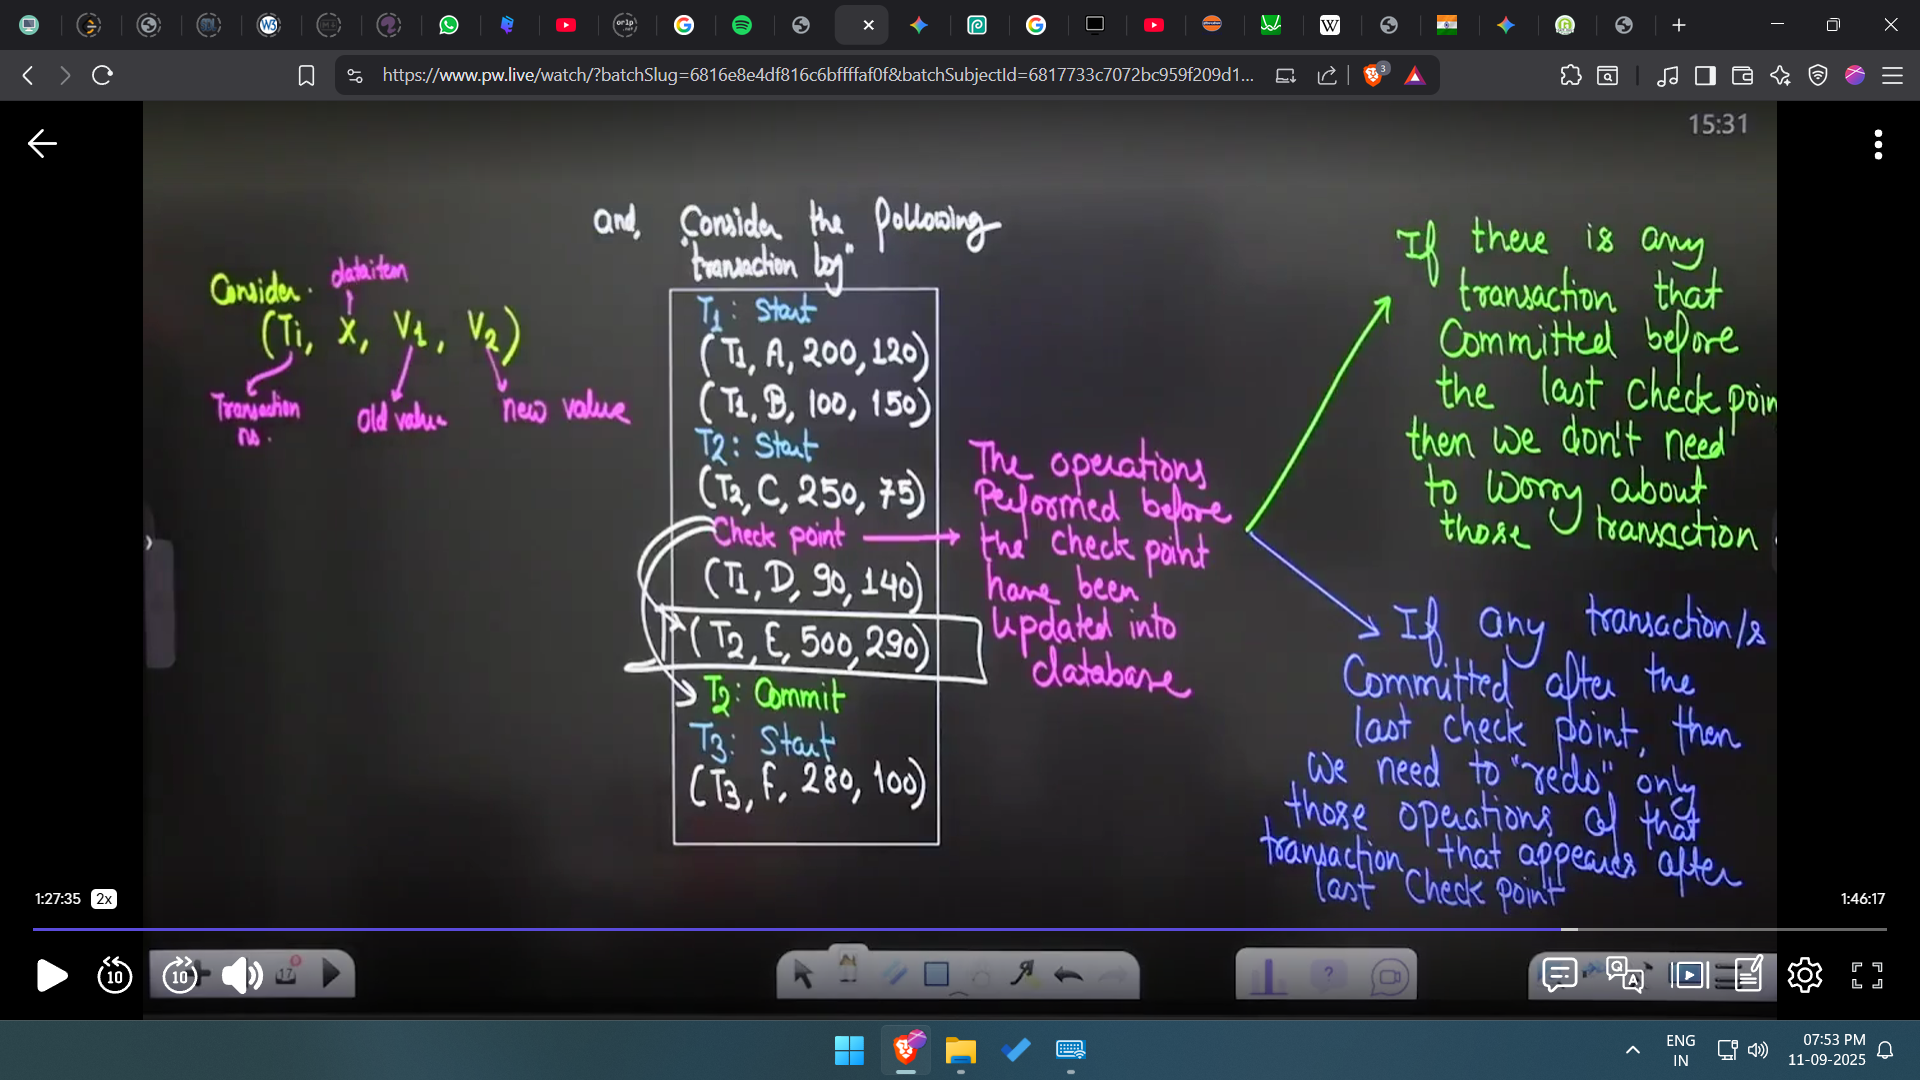 https://www.pw.live/watch/?batchSlug=6816e8e4df816c6bffffaf0f&batchSubjectId=6817733c7072bc959f209d1...
3
15:31
and, Consider the following
"transaction log"
Consider. dataitem
(Ti, X, V1, V2)
Transaction
no.
Old value
new value
T1: Start
(T1, A, 200, 120)
(T1, B, 100, 150)
T2: Start
(T2, C, 250, 75)
Check point
(T1, D, 90, 140)
(T2, E, 500, 290)
T2: Commit
T3: Start
(T3, F, 280, 100)
The operations
Performed before
the check point
have been
updated into
database
If there is any
transaction that
Committed before
the last check poin
then we don't need
to worry about
those transaction
If any transaction/s
Committed after the
last check point, then
we need to "redo" only
those operations of that
transaction that appears after
last Check point
1:27:35
2x
1:46:17
10
10
17
ENG
IN
07:53 PM
11-09-2025